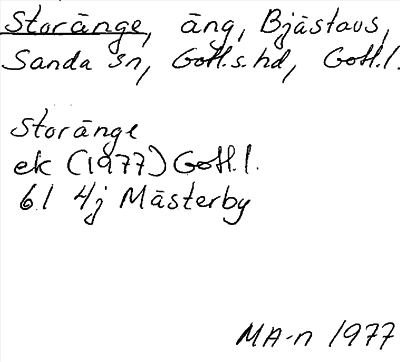 Storänge, äng, Bjästavs,
Sanda sn, Gotl.s.hd, Gotl.l.
Storänge
ek (1977) Gotl.l.
6I 4j Mästerby
MA-n 1977